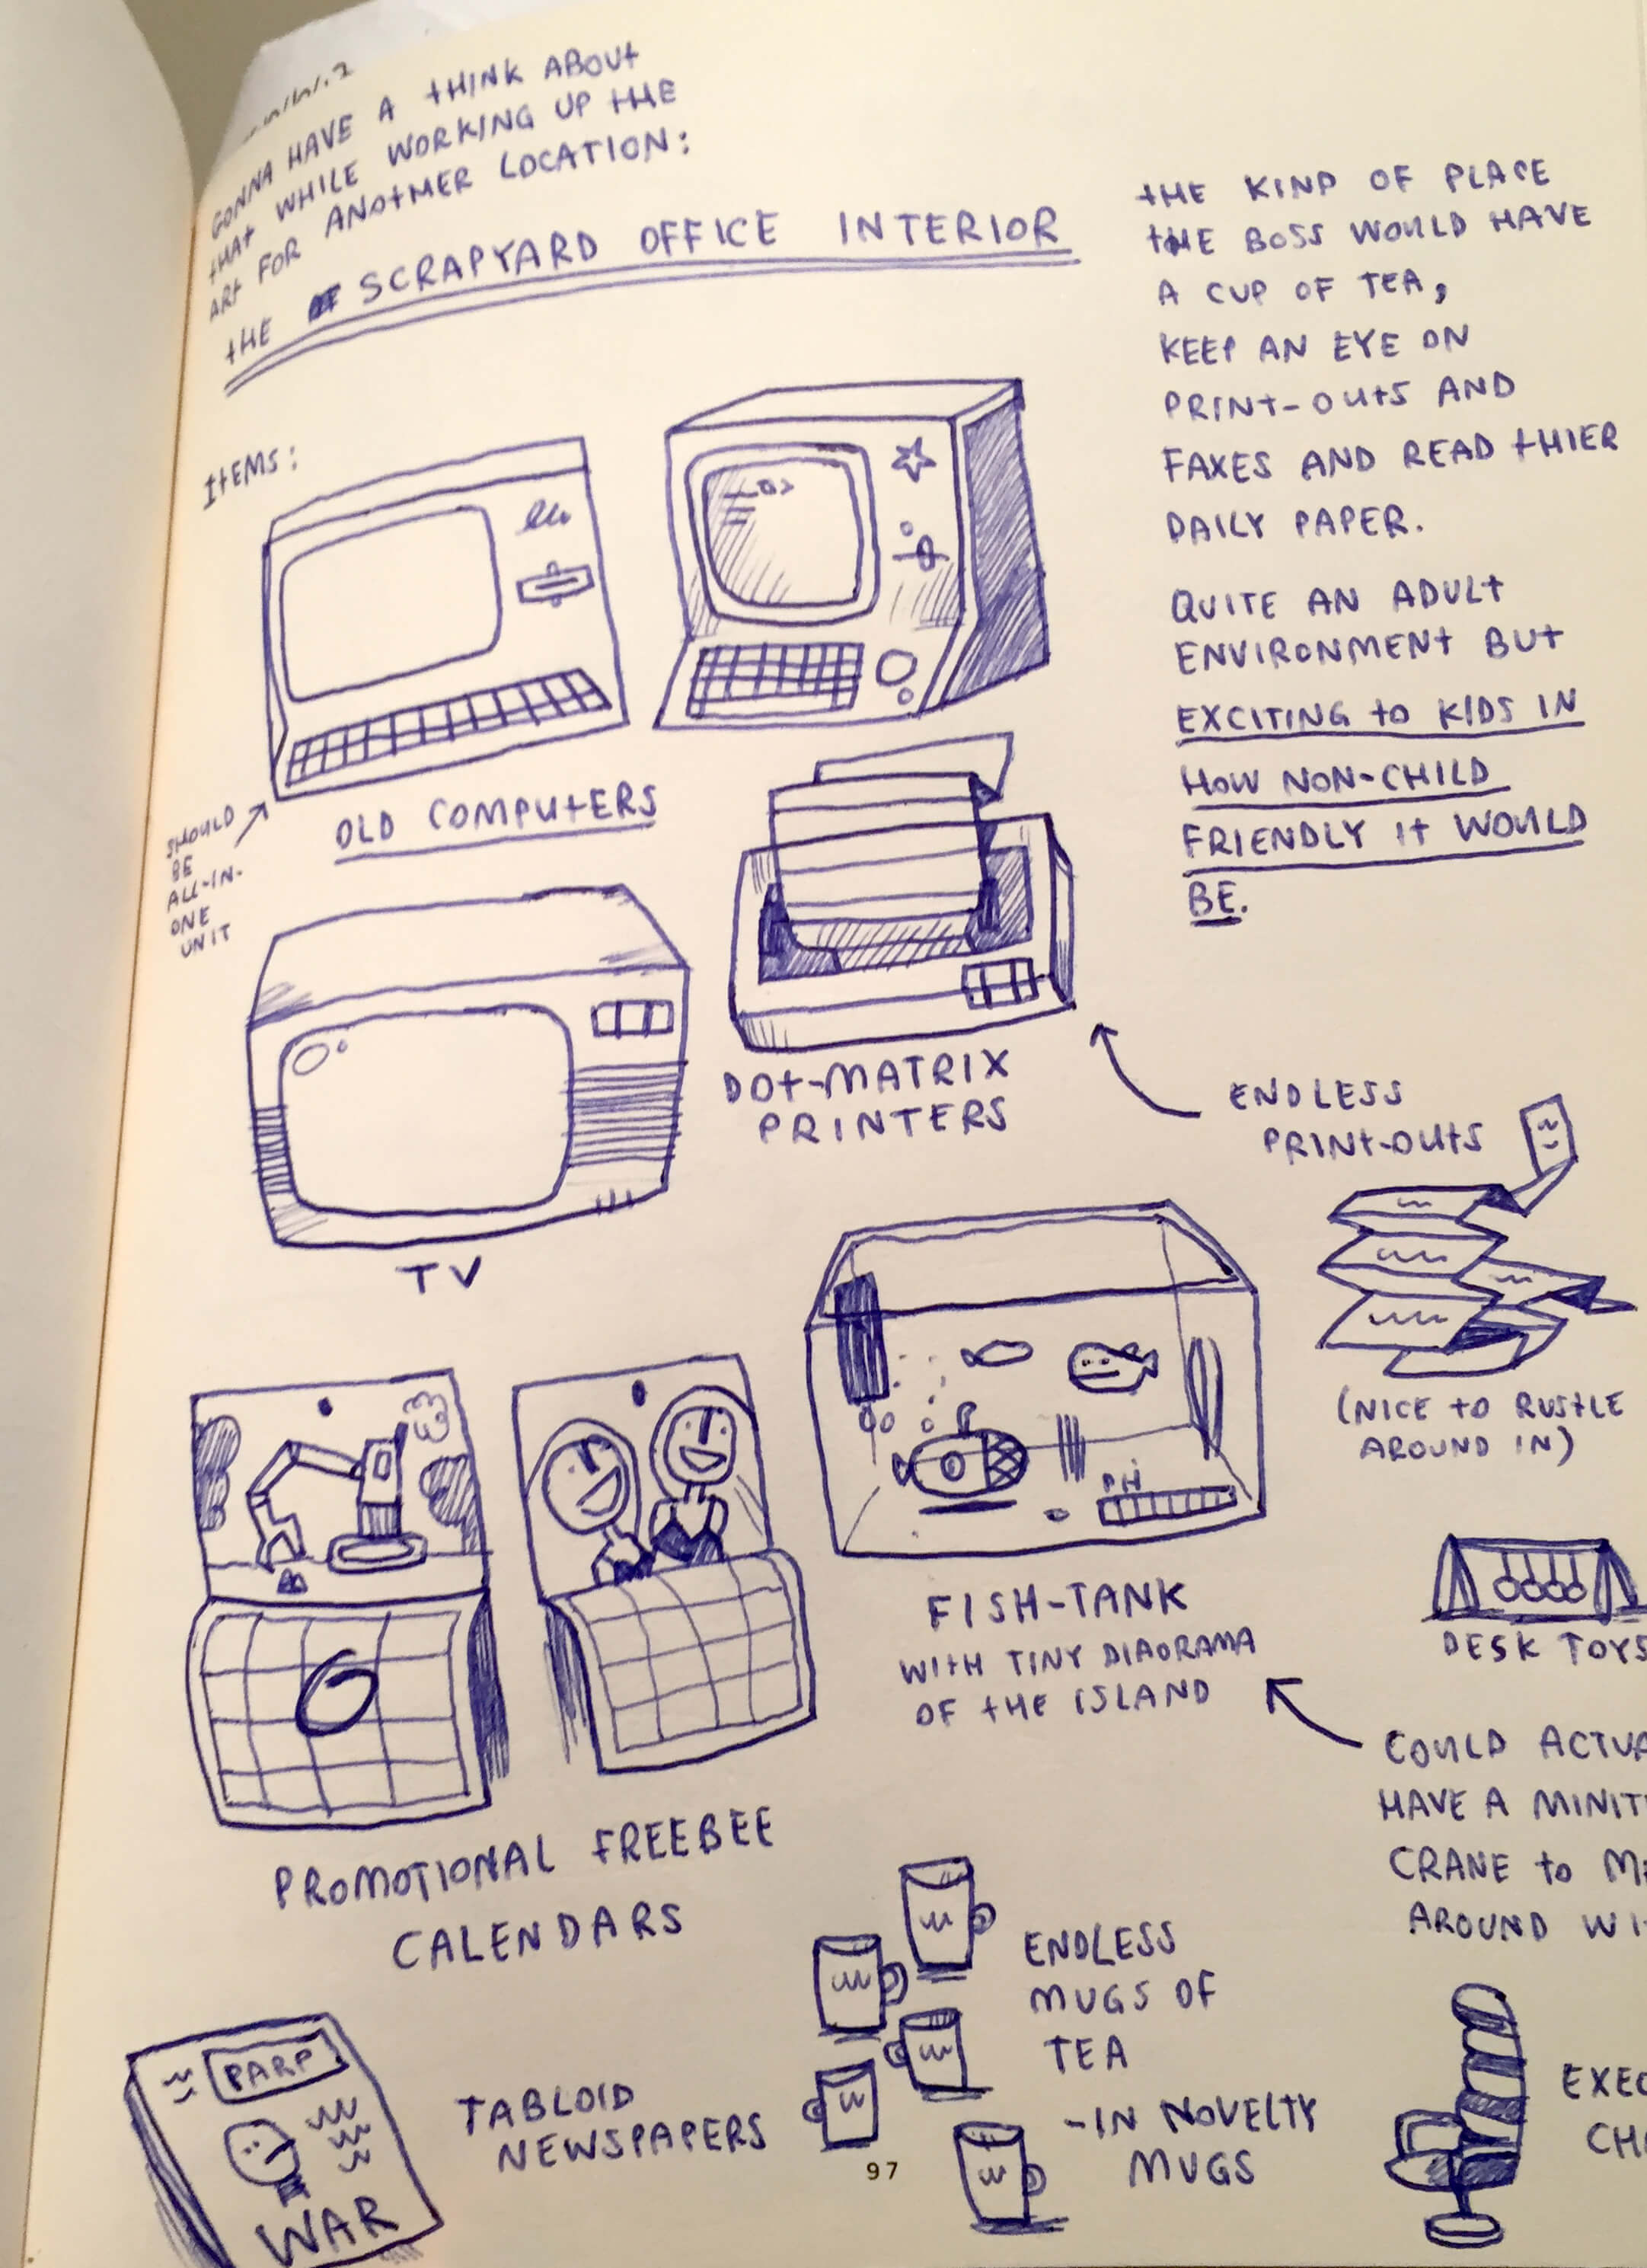 GONNA HAVE A THINK ABOUT
THAT WHILE WORKING UP THE
ART FOR ANOTHER LOCATION:
THE SCRAPYARD OFFICE INTERIOR
THE KIND OF PLACE
THE BOSS WOULD HAVE
A CUP OF TEA,
KEEP AN EYE ON
PRINT-OUTS AND
FAXES AND READ THIER
DAILY PAPER.
QUITE AN ADULT
ENVIRONMENT BUT
EXCITING TO KIDS IN
HOW NON-CHILD
FRIENDLY IT WOULD
BE.
ITEMS:
SHOULD
BE
ALL-IN-
ONE
UNIT
OLD COMPUTERS
DOT-MATRIX
PRINTERS
ENDLESS
PRINT-OUTS
(NICE TO RUSTLE
AROUND IN)
TV
PH
FISH-TANK
WITH TINY DIAORAMA
OF THE ISLAND
DESK TOYS
COULD ACTUA
HAVE A MINIT
CRANE TO M
AROUND WI
PROMOTIONAL FREEBEE
CALENDARS
ENDLESS
MUGS OF
TEA
-IN NOVELTY
MUGS
PARP
WAR
TABLOID
NEWSPAPERS
EXEC
CHA
97